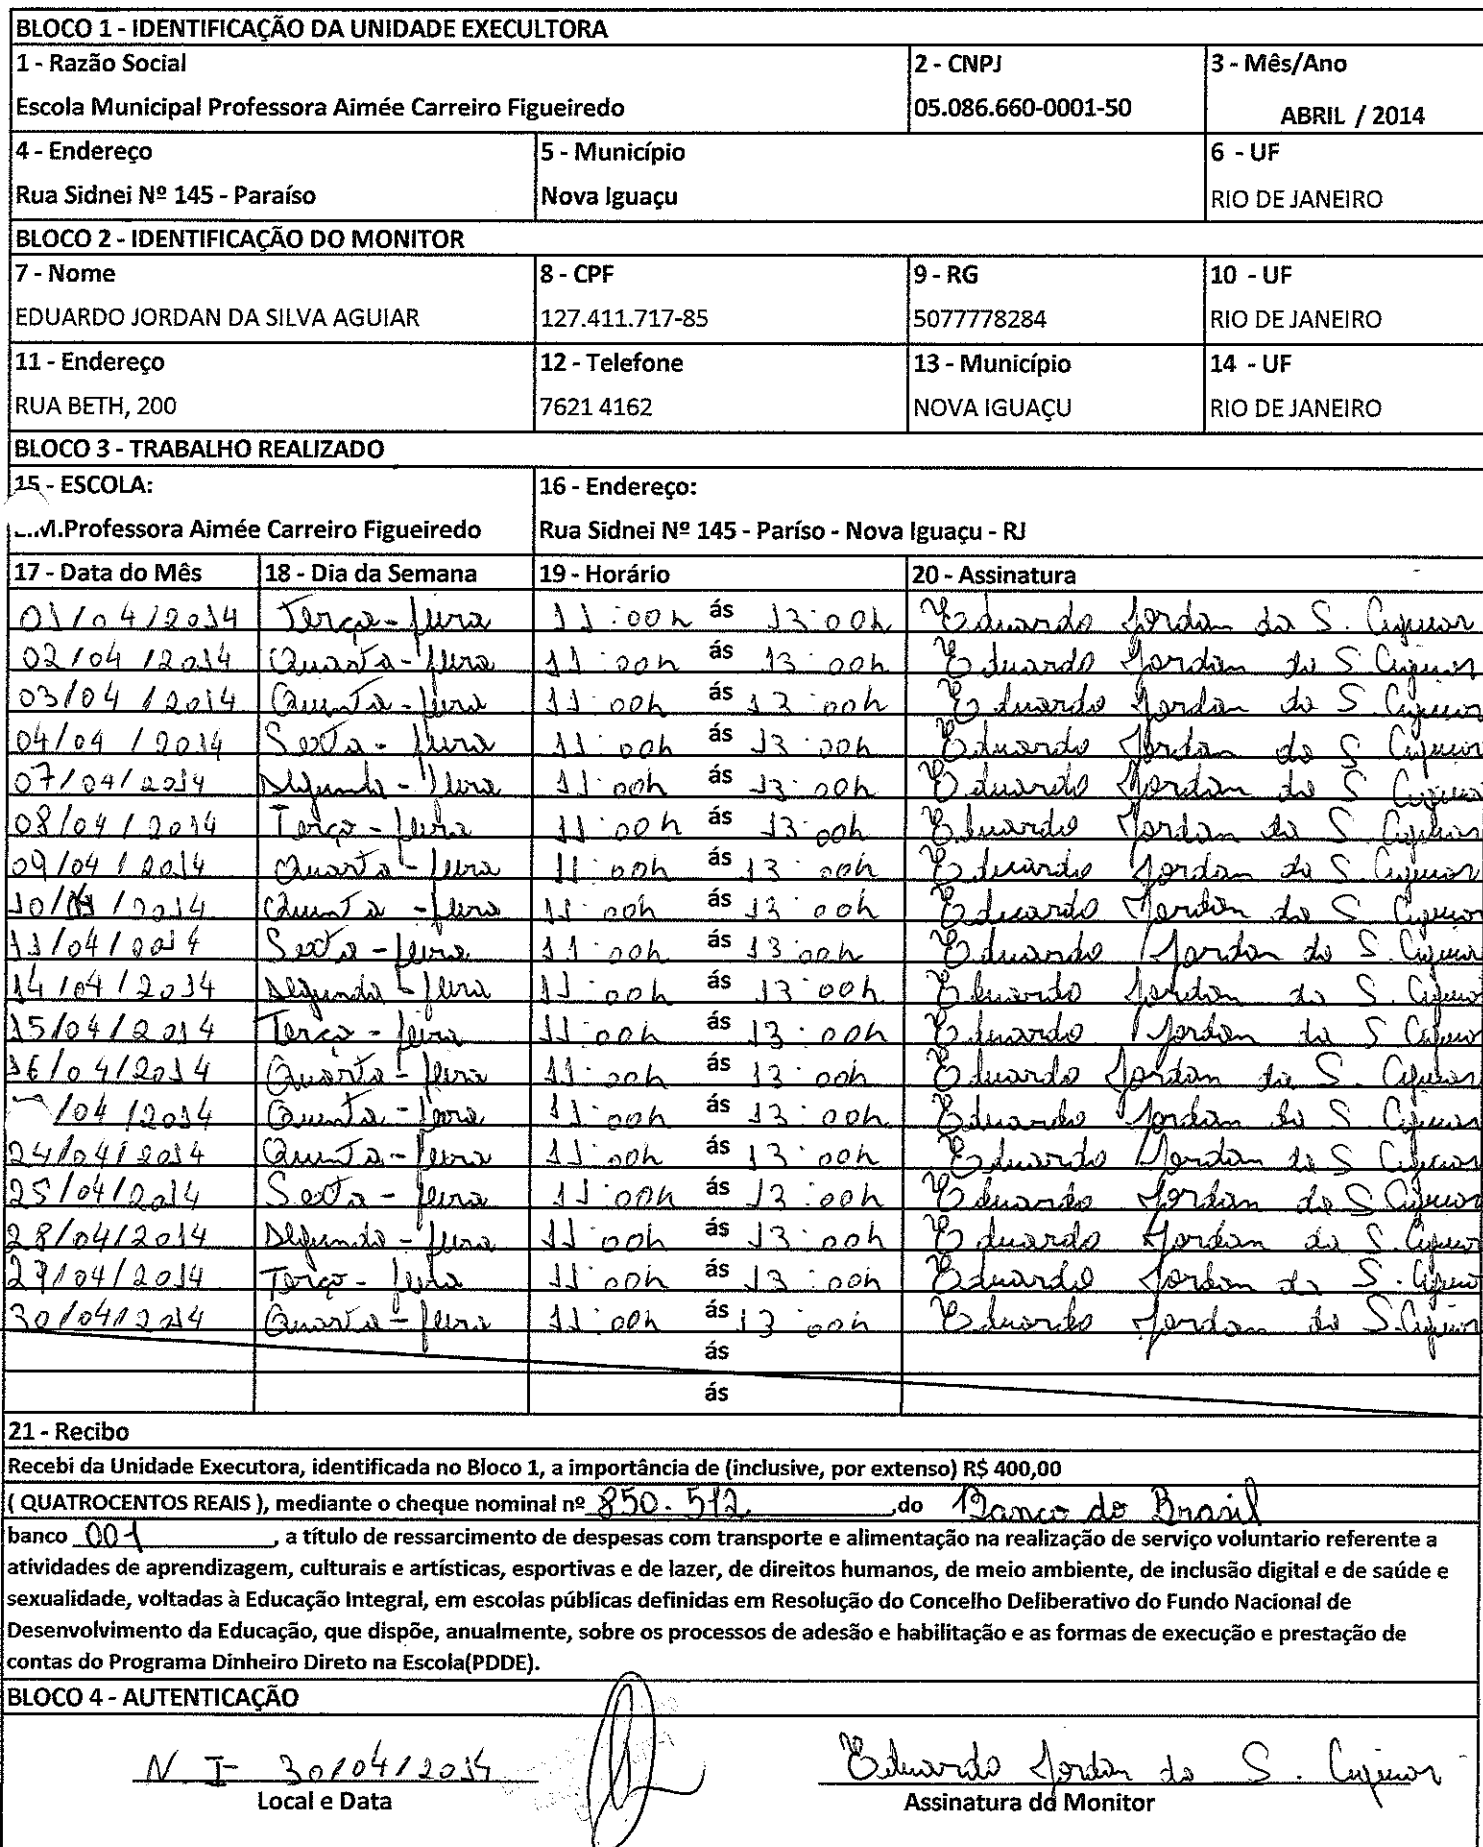 BLOCO 1 - IDENTIFICAÇÃO DA UNIDADE EXECULTORA
1 - Razão Social 2 - CNPJ 3 - Mês/Ano
Escola Municipal Professora Aimée Carreiro Figueiredo 05.086.660-0001-50 ABRIL / 2014
4 - Endereço 5 - Município 6 - UF
Rua Sidnei Nº 145 - Paraíso Nova Iguaçu RIO DE JANEIRO
BLOCO 2 - IDENTIFICAÇÃO DO MONITOR
7 - Nome 8 - CPF 9 - RG 10 - UF
EDUARDO JORDAN DA SILVA AGUIAR 127.411.717-85 5077778284 RIO DE JANEIRO
11 - Endereço 12 - Telefone 13 - Município 14 - UF
RUA BETH, 200 7621 4162 NOVA IGUAÇU RIO DE JANEIRO
BLOCO 3 - TRABALHO REALIZADO
15 - ESCOLA: 16 - Endereço:
.M.Professora Aimée Carreiro Figueiredo Rua Sidnei Nº 145 - Paríso - Nova Iguaçu - RJ
17 - Data do Mês 18 - Dia da Semana 19 - Horário 20 - Assinatura
01/04/2014 Terça-feira 11:00h ás 13:00h Eduardo Jordan da S. Aguiar
02/04/2014 Quarta-feira 11:00h ás 13:00h Eduardo Jordan da S. Aguiar
03/04/2014 Quinta-feira 11:00h ás 13:00h Eduardo Jordan da S. Aguiar
04/04/2014 Sexta-feira 11:00h ás 13:00h Eduardo Jordan da S. Aguiar
07/04/2014 Segunda-feira 11:00h ás 13:00h Eduardo Jordan da S. Aguiar
08/04/2014 Terça-feira 11:00h ás 13:00h Eduardo Jordan da S. Aguiar
09/04/2014 Quarta-feira 11:00h ás 13:00h Eduardo Jordan da S. Aguiar
10/04/2014 Quinta-feira 11:00h ás 13:00h Eduardo Jordan da S. Aguiar
11/04/2014 Sexta-feira 11:00h ás 13:00h Eduardo Jordan da S. Aguiar
14/04/2014 Segunda-feira 11:00h ás 13:00h Eduardo Jordan da S. Aguiar
15/04/2014 Terça-feira 11:00h ás 13:00h Eduardo Jordan da S. Aguiar
16/04/2014 Quarta-feira 11:00h ás 13:00h Eduardo Jordan da S. Aguiar
/04/2014 Quinta-feira 11:00h ás 13:00h Eduardo Jordan da S. Aguiar
24/04/2014 Quinta-feira 11:00h ás 13:00h Eduardo Jordan da S. Aguiar
25/04/2014 Sexta-feira 11:00h ás 13:00h Eduardo Jordan da S. Aguiar
28/04/2014 Segunda-feira 11:00h ás 13:00h Eduardo Jordan da S. Aguiar
29/04/2014 Terça-feira 11:00h ás 13:00h Eduardo Jordan da S. Aguiar
30/04/2014 Quarta-feira 11:00h ás 13:00h Eduardo Jordan da S. Aguiar
ás
ás
21 - Recibo
Recebi da Unidade Executora, identificada no Bloco 1, a importância de (inclusive, por extenso) R$ 400,00
( QUATROCENTOS REAIS ), mediante o cheque nominal nº 850.512 ,do Banco do Brasil
banco 001 , a título de ressarcimento de despesas com transporte e alimentação na realização de serviço voluntario referente a
atividades de aprendizagem, culturais e artísticas, esportivas e de lazer, de direitos humanos, de meio ambiente, de inclusão digital e de saúde e
sexualidade, voltadas à Educação Integral, em escolas públicas definidas em Resolução do Concelho Deliberativo do Fundo Nacional de
Desenvolvimento da Educação, que dispõe, anualmente, sobre os processos de adesão e habilitação e as formas de execução e prestação de
contas do Programa Dinheiro Direto na Escola(PDDE).
BLOCO 4 - AUTENTICAÇÃO
N. I 30/04/2014 Eduardo Jordan da S. Aguiar
Local e Data Assinatura do Monitor